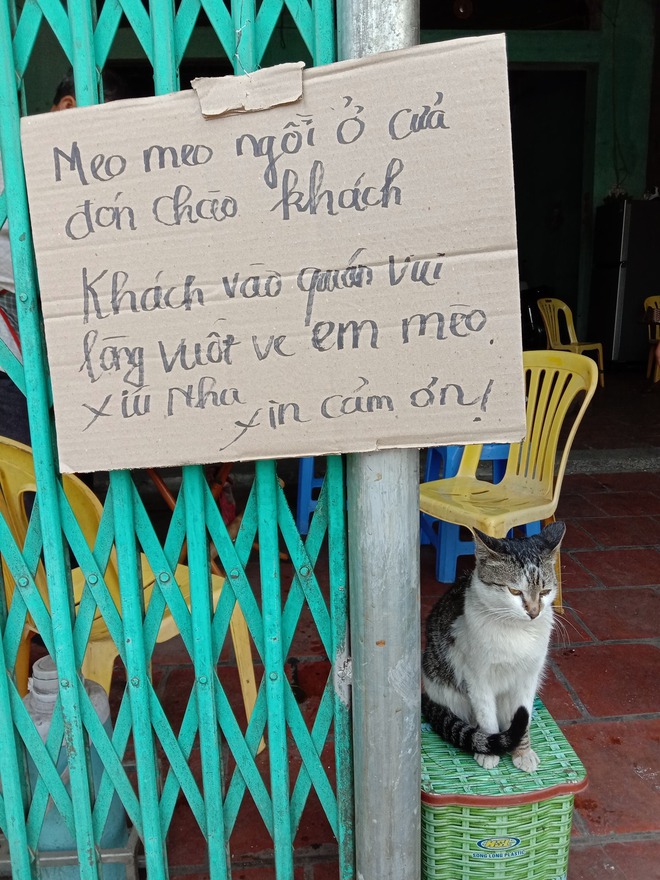 Meo meo ngồi ở cửa
đón chào khách
Khách vào quán vui
lòng vuốt ve em mèo
xíu nha xin cảm ơn!
LONG LONG PLASTIC